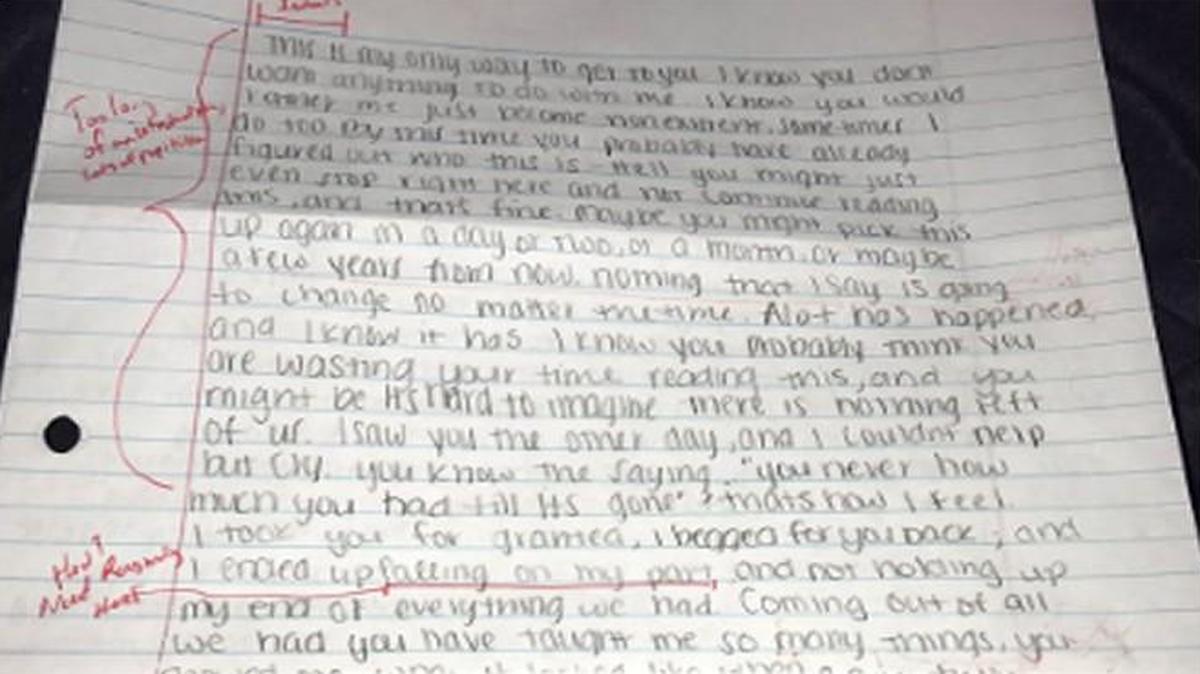 Indent
This is my only way to get to you I know you don't
want anything to do with me. I know you would
rather me just become nonexistent. sometimes I
do too By this time you probably have already
figured out who this is. Hell you might just
even stop right here and not continue reading
this, and thats fine. Maybe you might pick this
up again in a day or two, or a month, or maybe
a few years from now. nothing that I say is going
to change no matter the time. Alot has happened,
and I know it has I know you probably think you
are wasting your time reading this, and you
might be Its hard to imagine there is nothing left
of us. I saw you the other day, and I couldnt help
but cry. you know the saying, "you never how
much you had till Its gone" thats how I feel.
I took you for granted, I begged for you back, and
I ended up falling on my part, and not holding up
my end of everything we had Coming out of all
we had you have taught me so many things, you
Too long
of
How?
Need Reasoning
Here